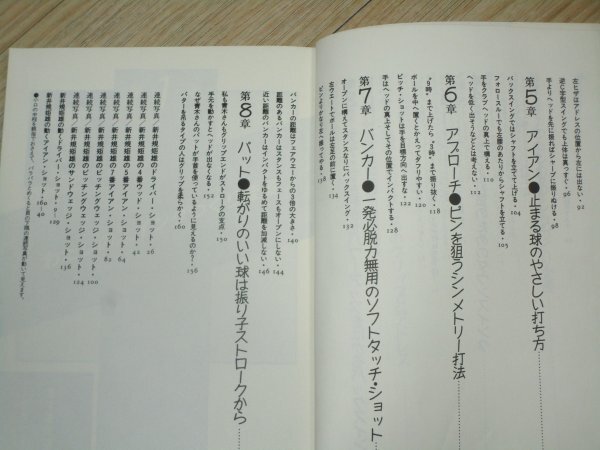 第5章 アイアン●止まる球のやさしい打ち方……
左ヒザはアドレスの位置から左には出ない・92
逆C字型スイングでも上体は真っすぐ・96
手よりヘッドを先に振れば、シャープに振りぬける・98
バックスイングではシャフトを立てて上げる・100
フォロースルーでも左腰のあたりからシャフトを立てる・105
ヘッドを低く出そうなどとは考えない・112
手をクラブヘッドの真上で構える・104
第6章 アプローチ●ピンを狙うシンメトリー打法……
"9時"まで上げたら、"3時"まで振り抜く・118
ボールを中へ置くとかえってダフりやすい・
ピッチ・ショットは手を目標方向へ出すな・122
手はヘッドの真上そしてその位置でインパクトする・128
第7章 バンカー●一発必脱力無用のソフトタッチ・ショット
オープンに構えてスタンスなりにバックスイング・132
左ウエートでボールは左足の前に置く・
138
バンカーの距離はフェアウエーからの3倍の大きさ・140
距離のあるバンカーはスタンスもフェースもオープンにしない・144
近い距離のバンカーはインパクトをゆるめて距離を加減しない・146
第8章 パット●転がりのいい球は振り子ストロークから……
私も青木さんもグリップエンドがストロークの支点・150
手元を動かすとヘッドが出なくなる・152
なぜ青木さんのパットが手首を使っているように見えるのか・156
パターを吊るタイプの人はグリップを柔らかく・160
連続写真／新井規矩雄のドライバー・ショット・26
連続写真／新井規矩雄の4番ウッド・ショット・42
連続写真／新井規矩雄の2番アイアン・ショット・64
連続写真／新井規矩雄の7番アイアン・ショット・82
連続写真／新井規矩雄のピッチングウェッジ・ショット・100
連続写真／新井規矩雄のサンドウェッジ・ショット・124
136
新井規矩雄の動くドライバー・ショット・9〜129
新井規矩雄の動くアイアン・ショット・160〜40